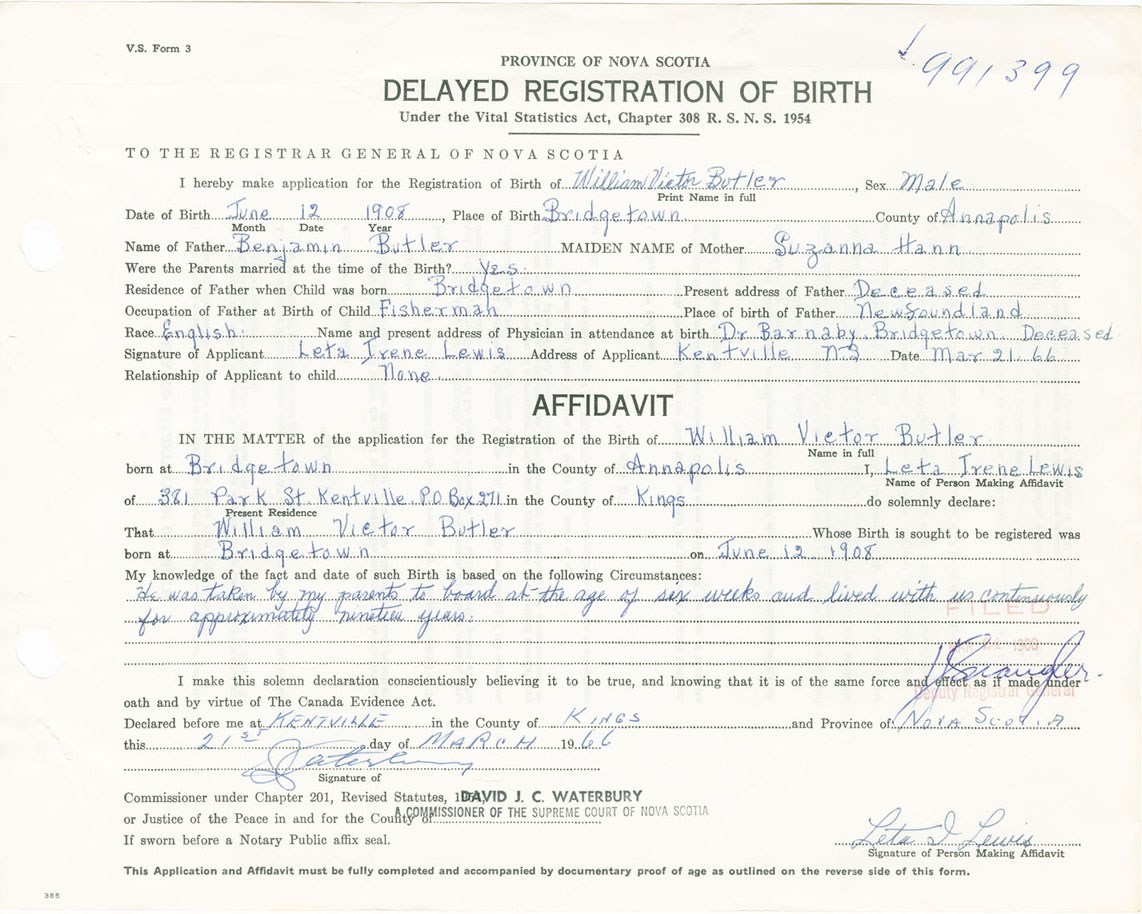 V.S. Form 3
991399
PROVINCE OF NOVA SCOTIA
DELAYED REGISTRATION OF BIRTH
Under the Vital Statistics Act, Chapter 308 R. S. N. S. 1954
TO THE REGISTRAR GENERAL OF NOVA SCOTIA
I hereby make application for the Registration of Birth of William Victor Butler, Sex Male
Print Name in full
Date of Birth June 12 1908, Place of Birth Bridgetown County of Annapolis
Month Date Year
Name of Father Benjamin Butler MAIDEN NAME of Mother Suzanna Hann
Were the Parents married at the time of the Birth? Yes.
Residence of Father when Child was born Bridgetown Present address of Father Deceased
Occupation of Father at Birth of Child Fisherman Place of birth of Father Newfoundland
Race English Name and present address of Physician in attendance at birth Dr Barnaby, Bridgetown Deceased
Signature of Applicant Leta Irene Lewis Address of Applicant Kentville NS Date Mar 21. 66
Relationship of Applicant to child None
AFFIDAVIT
IN THE MATTER of the application for the Registration of the Birth of William Victor Butler
Name in full
born at Bridgetown in the County of Annapolis I, Leta Irene Lewis
Name of Person Making Affidavit
of 381 Park St. Kentville P.O. Box 271 in the County of Kings do solemnly declare:
Present Residence
That William Victor Butler Whose Birth is sought to be registered was
born at Bridgetown on June 12 1908
My knowledge of the fact and date of such Birth is based on the following Circumstances:
He was taken by my parents to board at the age of sex weeks and lived with us continuously
for approximately nineteen years.
FILED
I make this solemn declaration conscientiously believing it to be true, and knowing that it is of the same force and effect as if made under
Deputy Registrar General
oath and by virtue of The Canada Evidence Act.
Declared before me at KENTVILLE in the County of KINGS and Province of NOVA SCOTIA
this 21ST day of MARCH 1966
Signature of
Commissioner under Chapter 201, Revised Statutes, DAVID J. C. WATERBURY
or Justice of the Peace in and for the County of A COMMISSIONER OF THE SUPREME COURT OF NOVA SCOTIA
If sworn before a Notary Public affix seal.
Leta I Lewis
Signature of Person Making Affidavit
This Application and Affidavit must be fully completed and accompanied by documentary proof of age as outlined on the reverse side of this form.
385